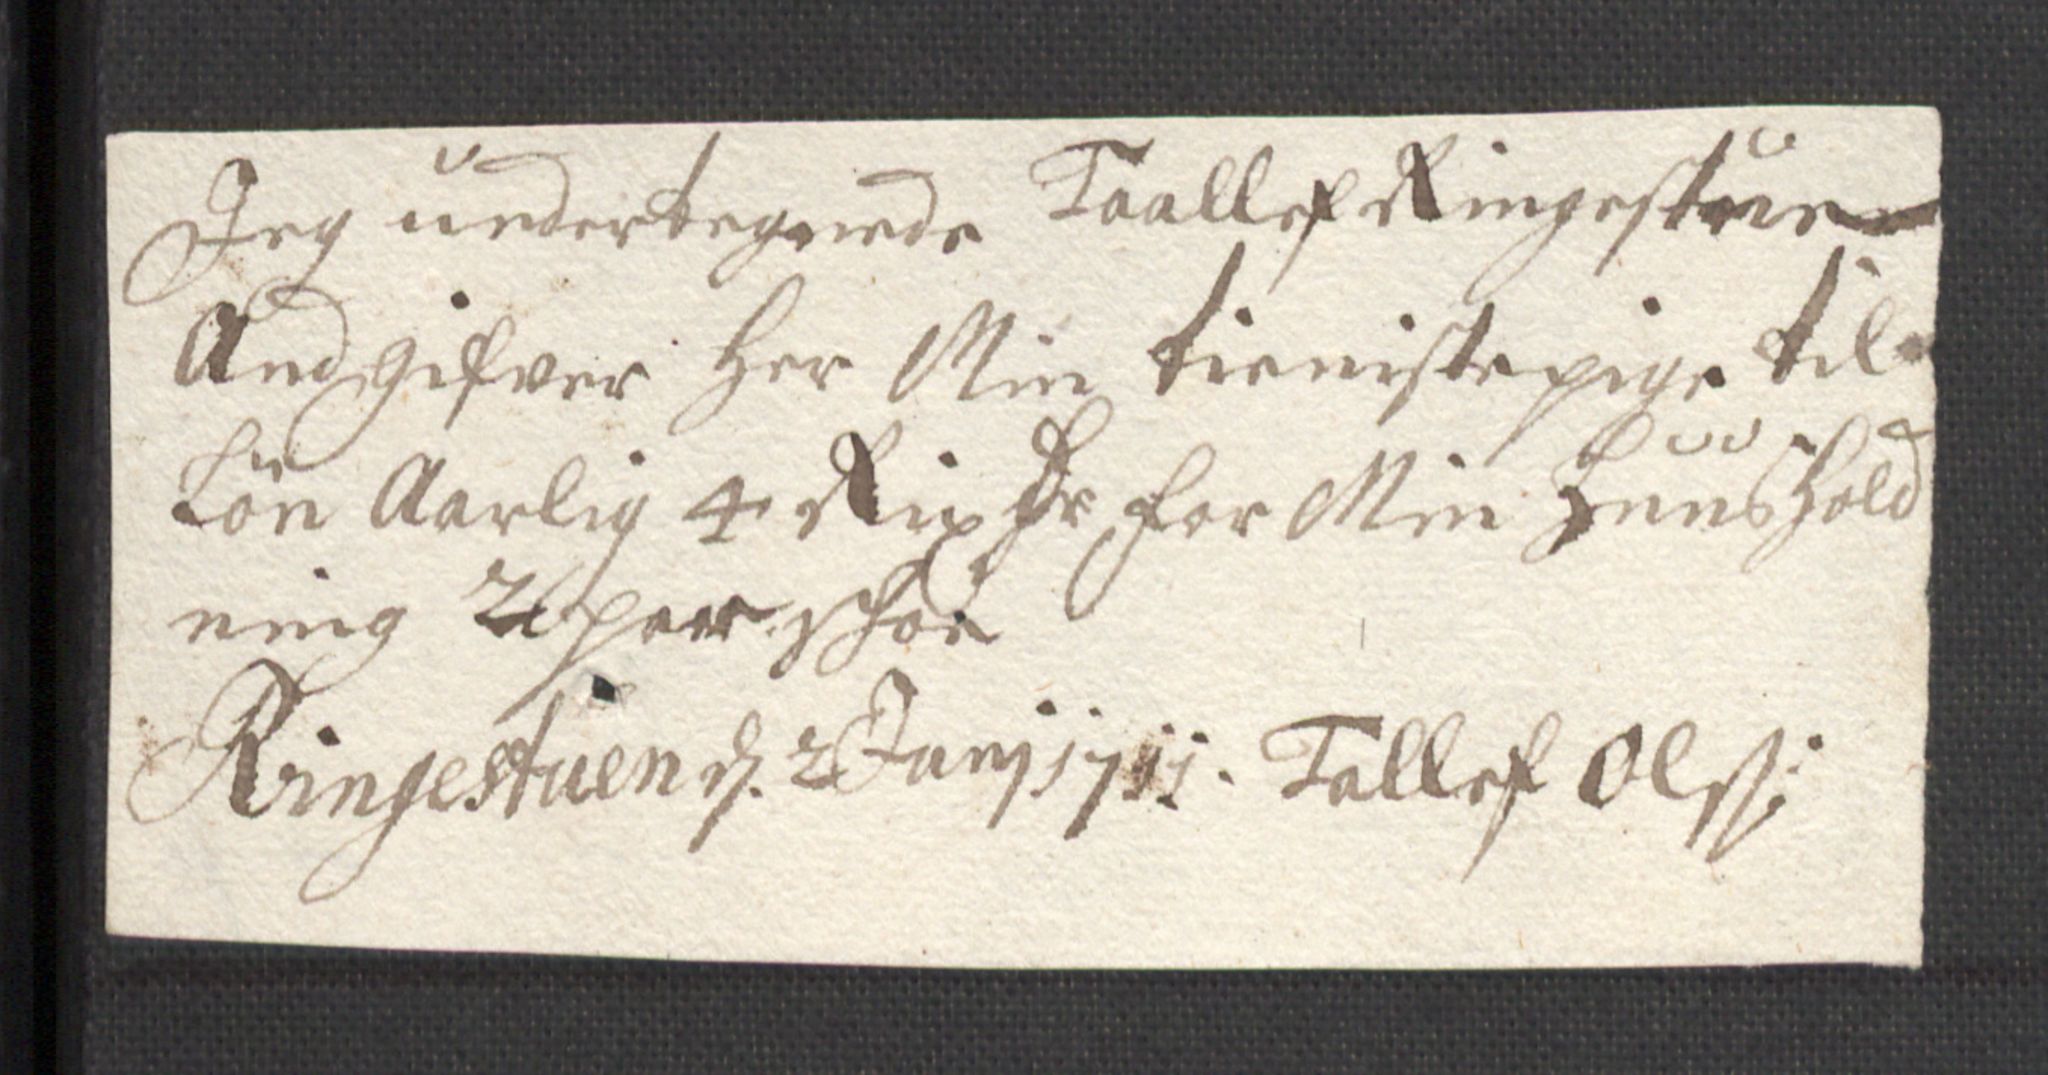 Jeg undertegnede Taallef Ringestuen
And gifver her Min tienistepige til
Lön Aarlig 4 Rix dr for Min Huus Hold
ning 2 par schoe
Ringestuen d. 2 Junj 1711. Tallef Olss: